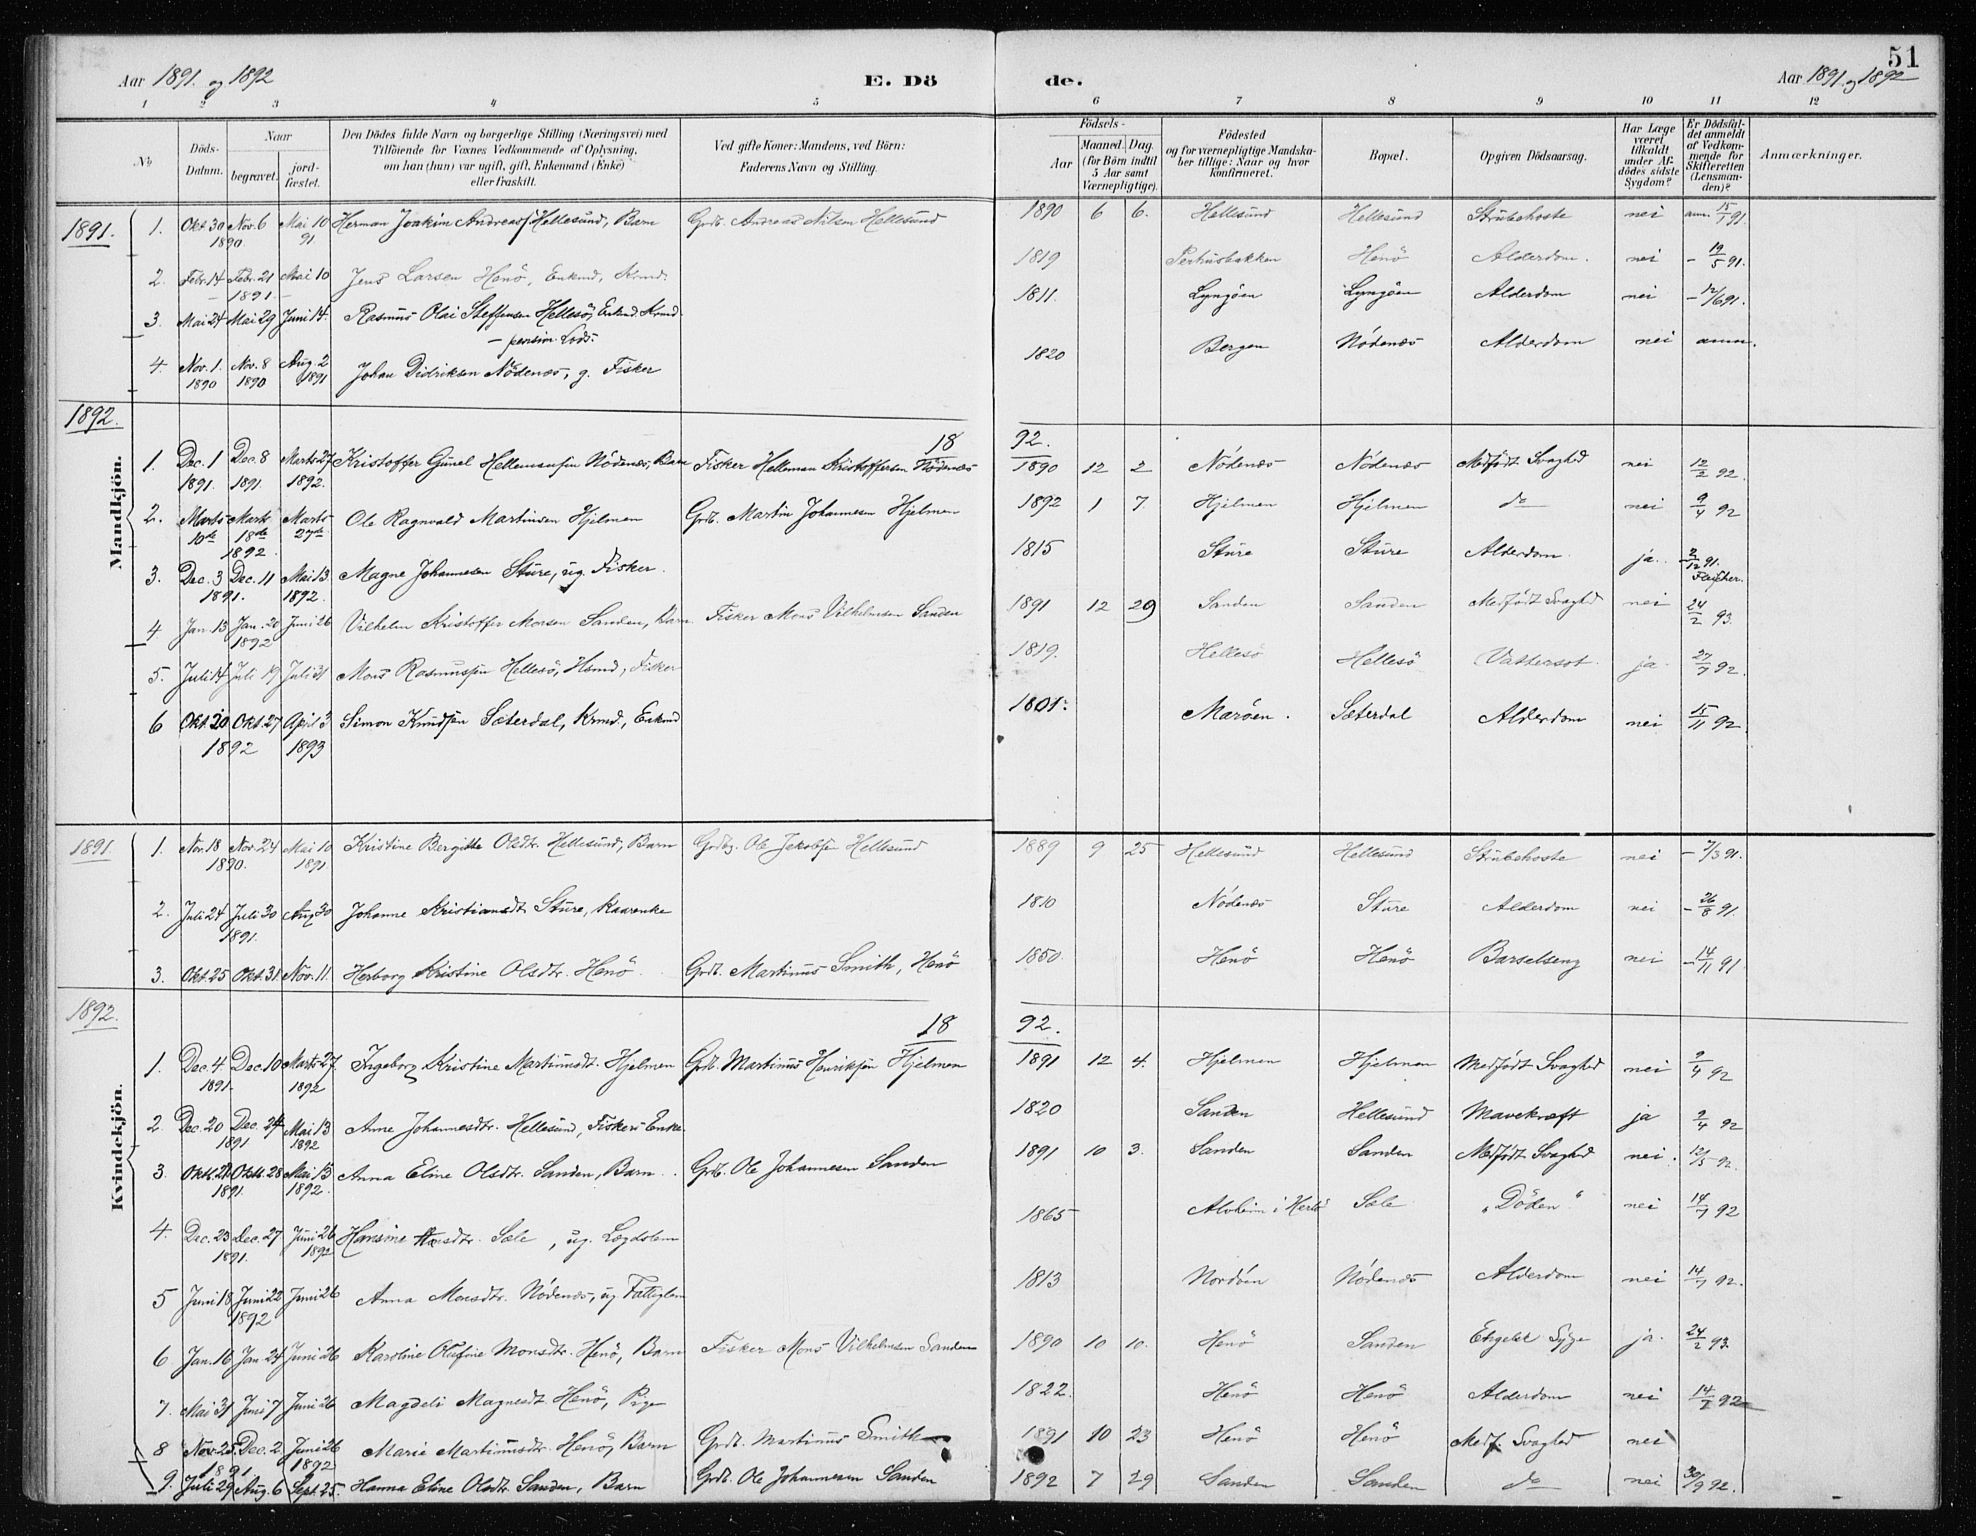 51
Aar 1891. og 1892 E. Dö de. Aar 1891. og 1892
1 2 3 4 5 6 7 8 9 10 11 12
No
Döds-Datum.
Naar
begravet.
jord-fæstet.
Den Dödes fulde Navn og borgerlige Stilling (Næringsvei) med
Tilföiende for Voxnes Vedkommende af Oplysning,
om han (hun) var ugift, gift, Enkemand (Enke)
eller fraskilt.
Ved gifte Koner: Mandens, ved Börn:
Faderens Navn og Stilling.
Födsels-
Aar
Maaned. Dag.
(for Börn indtil
5 Aar samt
Værnepligtige).
Födested
og for værnepligtige Mandska-
ber tillige: Naar og hvor
konfirmeret.
Bopæl.
Opgiven Dödsaarsag.
Har Læge
været
tilkaldt
under Af-
dödes sidste
Sygdom?
Er Dödsfal-
det anmeldt
af Vedkom-
mende for
Skifteretten
(Lensman-
den)?
Anmærkninger.
Mandkjön.
1891. 1. Okt 30 Nov. 6 1890 Mai 10 91 Herman Joakim Andreassen Hellesund, Barn Grdb. Andreas Nilsen Hellesund 1890 6 6. Hellesund Hellesund Strubehoste nei anm. 15/1 91.
2. Febr. 14 Febr. 21 Mai 10 – 1891 – Jens Larsen Henö, Enkmd, Krmd. 1819 Perhusbakken Henö Alderdom. nei – 19/5 91.
3. Mai 24 Mai 29 Juni 14. Rasmus Olai Steffensen Hellesö, Enkmd. Krmd. 1811. Lyngöen Lyngöen Alderdom nei – 12/6 91.
– pension. Lods.
4. Nov. 1. 1890 Nov. 8 1890 Aug. 2 1891 Johan Didriksen Nödenæs, g. Fisker 1820 Bergen Nödenæs Alderdom nei anm.
1892. 18 92.
1. Dec. 1 1891. Dec. 8 1891. Marts 27 1892. Kristoffer Gunel Hellemansen Nödenæs, Barn Fisker Helleman Kristoffersen Nödenæs 1890 12 2 Nödenæs Nödenæs Medfödt Svaghed nei 12/2 92.
2. Marts 10de Marts 18de 1892. Marts 27de Ole Ragnvald Martinsen Hjelmen Grdb. Martin Johannesen Hjelmen 1892 1 7. Hjelmen Hjelmen do nei 9/4 92
3. Dec. 3 Dec. 11 1891. Mai 13. 1892. Magne Johannesen Sture, ug. Fisker. 1815 Sture Sture Alderdom. ja. 2/12 91.
4 Jan. 13 Jan. 20 1892 Juni 26 Vilhelm Kristoffer Monsen Sanden, Barn Fisker Mons Vilhelmsen Sanden 1891 12 29 Sanden Sanden Medfödt Svaghed nei 24/2 93.
5. Juli 14 Juli 19 Juli 31 Mons Rasmussen Hellesö, Hsmd, Fisker 1819. Hellesö Hellesö Vattersot. ja. 27/7 92.
6 Okt. 20 Okt. 27 1892 April 3 1893 Simon Knudsen Sæterdal, Krmd., Enkmd 1801. Maröen. Sæterdal Alderdom nei 15/11 92.
Kvindekjön.
1891. 1. Nov. 18 Nov. 24 1890. Mai 10 1891. Kristine Bergitte Olsdtr. Hellesund, Barn Grdbg. Ole Jakobsen Hellesund 1889 9 25 Hellesund Hellesund Strubehoste nei – 7/3 91.
2. Juli 24 Juli 30 1891. Aug 30 Johanne Kristiansdt. Sture, Kaarenke 1810 Nödenæs Sture Alderdom nei – 26/8 91.
3. Okt. 25 Okt. 31 Nov. 11. Herborg Kristine Olsdtr. Henö. Grdb. Martinus Smith, Henö 1850. Henö Henö Barselseng nei – 14/11 91.
1892. 18 92.
1. Dec. 4 Dec. 10 1891. Marts 27. 1892 Ingeborg Kristine Martinusdt. Hjelmen Grdb. Martinus Henriksen Hjelmen 1891 12 4. Hjelmen Hjelmen Medfödt Svaghed nei 9/4 92
2. Dec. 20 Dec. 24 1891 Mai 13 1892 Anne Johannesdtr. Hellesund, Fiskers Enke. 1820 Sanden Hellesund Mavekræft ja 9/4 92
3. Okt. 21 Okt. 28 1891. Mai 13 1892. Anna Eline Olsdtr. Sanden, Barn. Grdb. Ole Johannesen Sanden 1891 10 3. Sanden Sanden Medfödt Svaghed nei. 12/5 92.
4. Dec. 23 Dec. 27 1891. Juni 26 1892 Hansine Aasdtr. Sæle, ug. Lægdslem 1865 Alvheim i Herlö Sæle „Döden“ nei 14/7 92
5 Juni 18 Juni 22 1892 Juni 26 Anna Monsdtr. Nödenæs, ug Fattiglem 1813 Nordöen Nödenæs Alderdom nei 14/7 92.
6 Jan. 16 Jan 24 Juni 26 Karoline Olufine Monsdtr. Henö, Barn Fisker Mons Vilhelmsen Sanden 1890 10 10. Henö Sanden Engelsk Syge ja. 24/2 93.
7. Mai 31 Juni 7 Juni 26 Magdeli Magnesdt. Henö, Pige 1822. Henö Henö Alderdom nei 14/7 92
8 Nov. 25. Dec. 2. 1891 Juni 26 1892 Marie Martinusdtr. Henö, Barn Grdb. Martinus Smith 1891 10 23 Henö Henö Medf. Svaghed nei
9. Juli 29 Aug. 6 Sept. 25. Hanna Eline Olsdtr. Sanden, Barn Grdb. Ole Johannesen Sanden 1892 7 29 Sanden Sanden do nei 30/9 92.